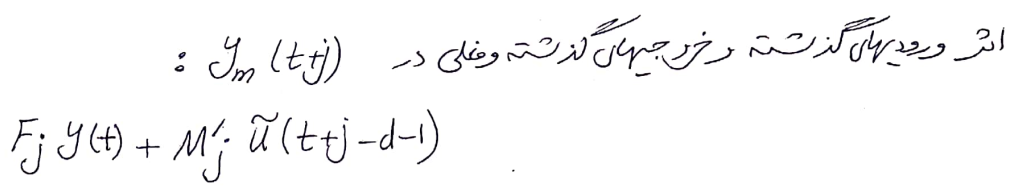 اثر ورودیهای گذشته و خروجیهای گذشته و فعلی در yₘ(t+j) :
Fⱼ y(t) + M′ⱼ ũ(t+j-d-1)